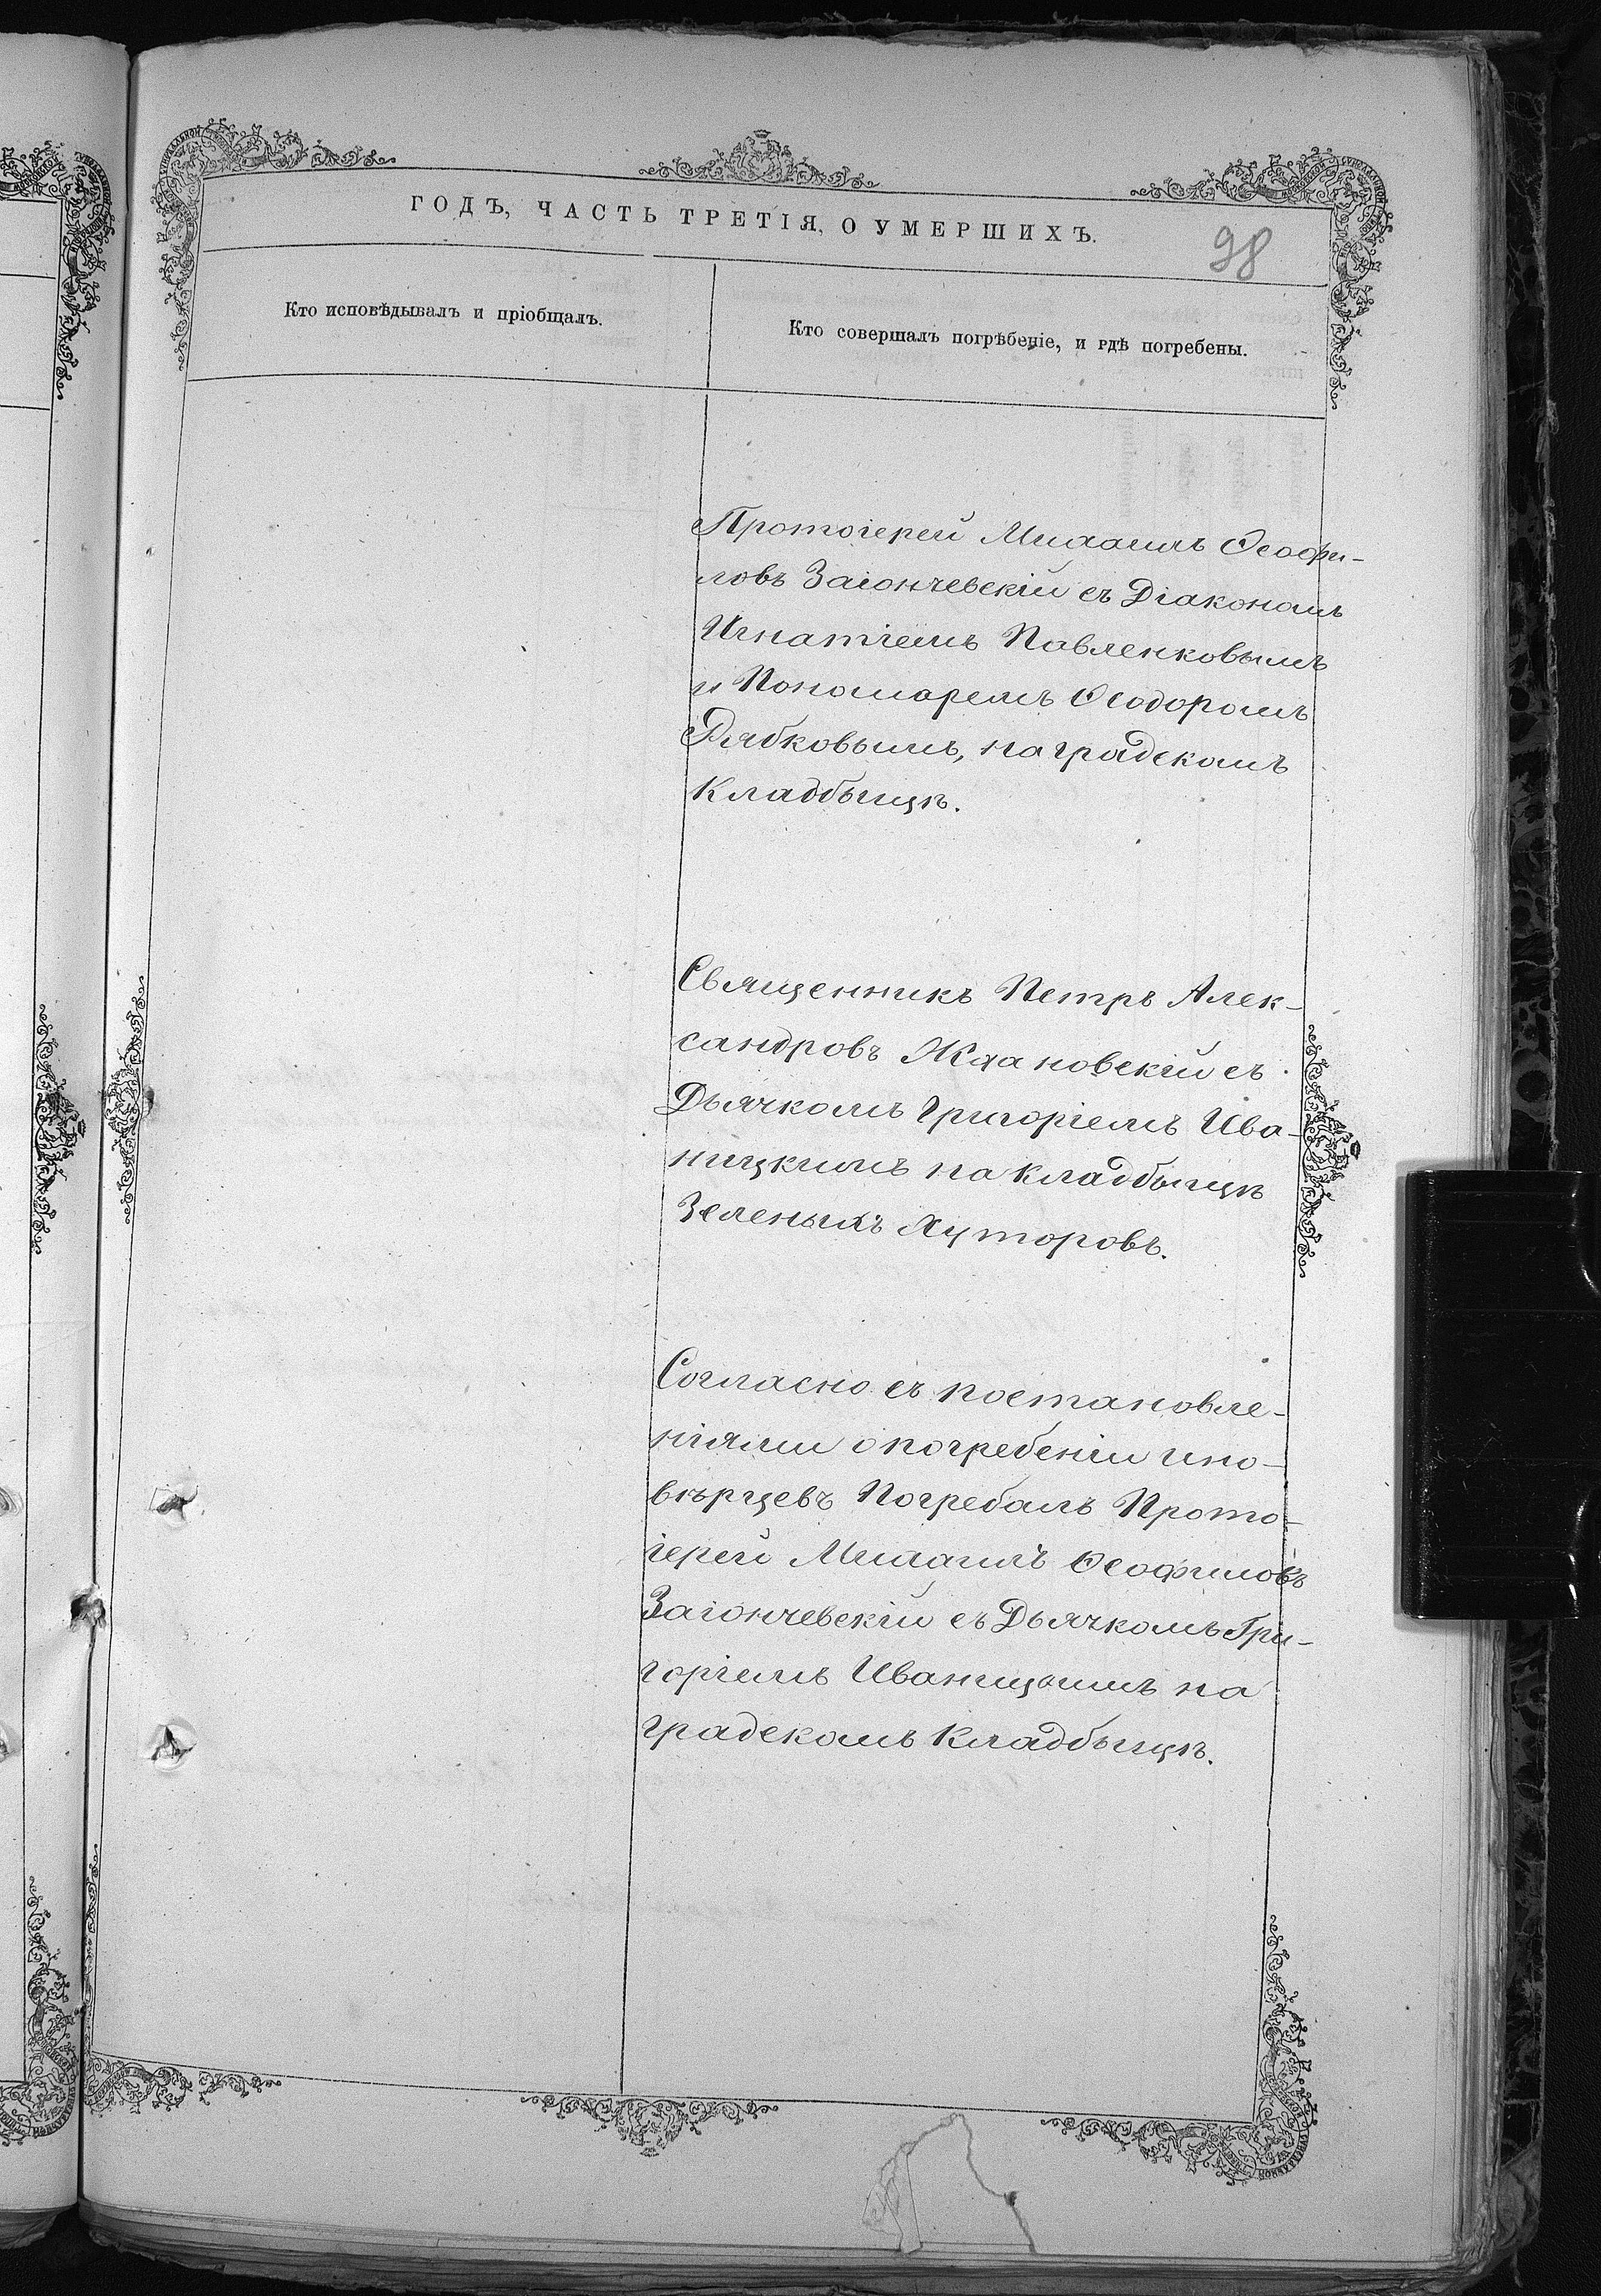 ГОДЪ, ЧАСТЬ ТРЕТІЯ, О УМЕРШИХЪ.
98
Кто исповѣдывалъ и пріобщалъ.
Кто совершалъ погрѣбеніе, и гдѣ погребены.
Протоіерей Михаилъ Ѳеофи-
ловъ Заіончевскій съ Діакономъ
Игнатіемъ Павленковымъ
и Пономаремъ Ѳеодоромъ
Рябковымъ, на градскомъ
Кладбыщѣ.
Священникъ Петръ Алек-
сандровъ Ждановскій съ
Дьячкомъ Григоріемъ Ива-
ницкимъ на кладбыщѣ
Зеленыхъ Хуторовъ.
Согласно съ постановле-
ніями о погребеніи ино-
вѣрцевъ Погребалъ Прото-
іерей Михаилъ Ѳеофиловъ
Заіончевскій съ Дьячкомъ Гри-
горіемъ Иваницкимъ на
градскомъ Кладбыщѣ.